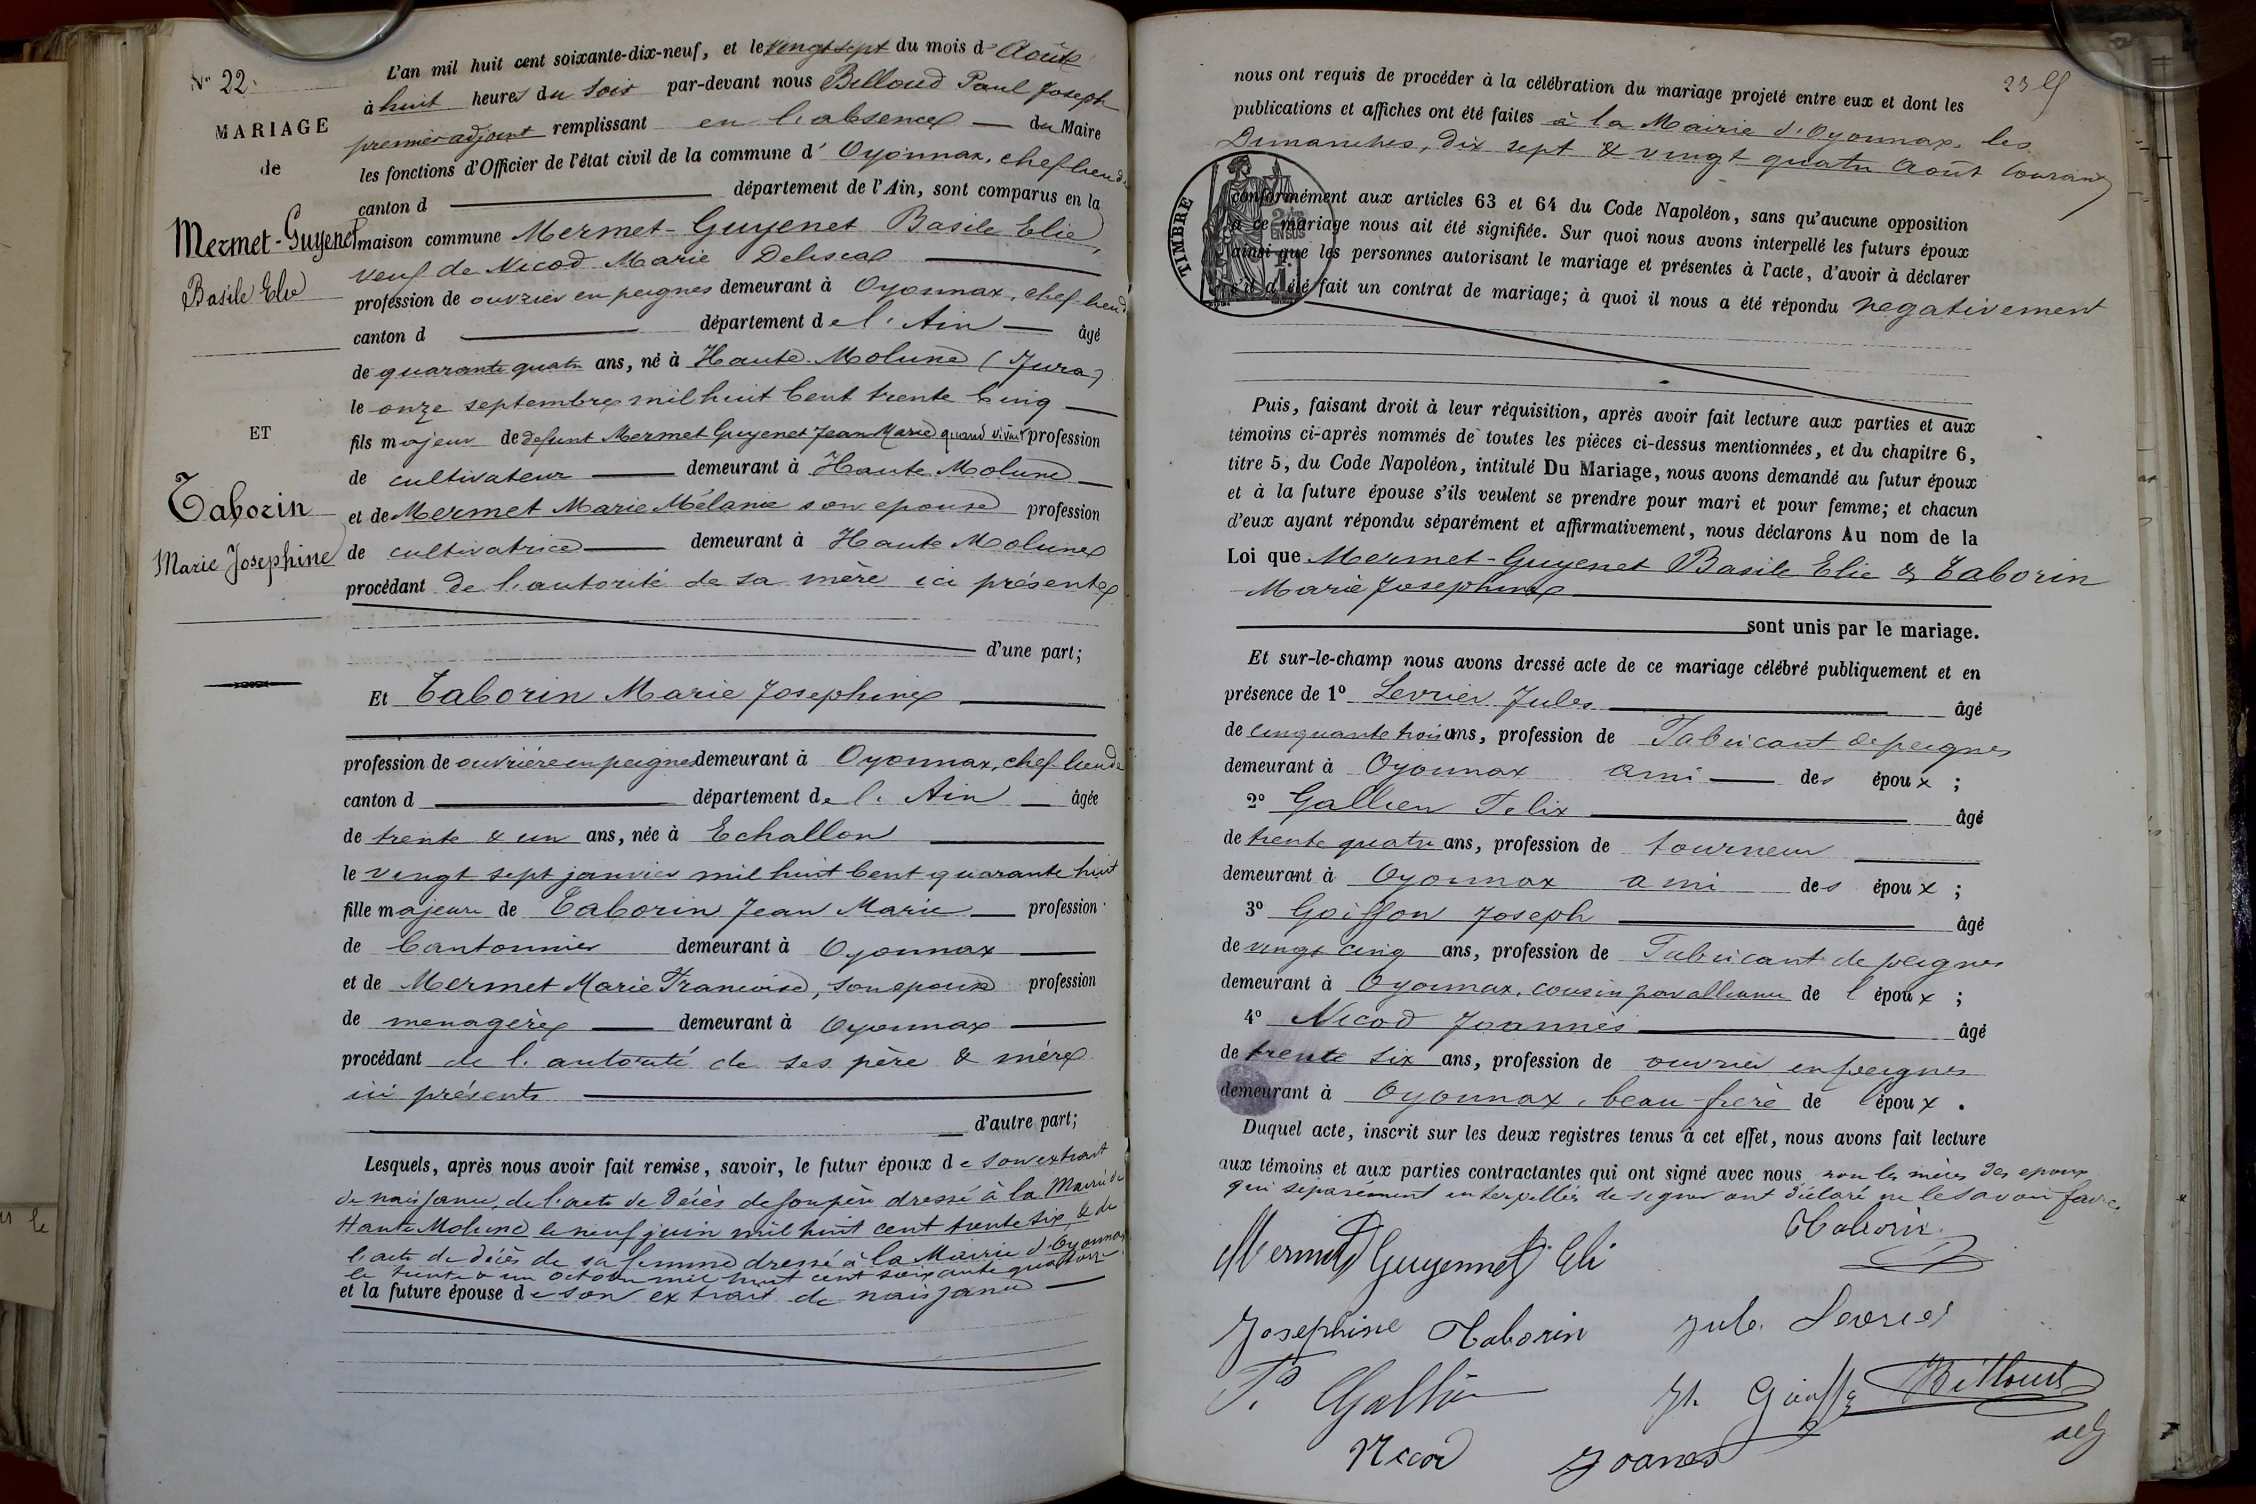 No 22.
MARIAGE
de
Mermet-Guyenet
Basile Elie
ET
Taborin
Marie Josephine
L'an mil huit cent soixante-dix-neuf, et le vingt sept du mois d'Août
à huit heures du soir par-devant nous Billoud Paul Joseph
premier adjoint remplissant en l'absence du Maire
les fonctions d'Officier de l'état civil de la commune d'Oyonnax, chef lieu de
canton d département de l'Ain, sont comparus en la
maison commune Mermet-Guyenet Basile Elie,
veuf de Nicod Marie
profession de ouvrier en peignes demeurant à Oyonnax, chef lieu d
canton d département de l'Ain âgé
de quarante quatre ans, né à Haute-Molune (Jura)
le onze septembre mil huit cent trente cinq
fils majeur de defunt Mermet Guyenet Jean Marie quand vivait profession
de cultivateur demeurant à Haute Molune
et de Mermet Marie Mélanie son epouse profession
de cultivatrice demeurant à Haute Molune
procédant de l'autorité de sa mère ici présente
d'une part;
Et Taborin Marie Josephine
profession de ouvrière en peignes demeurant à Oyonnax, chef lieu de
canton d département de l'Ain âgée
de trente & un ans, née à Echallon
le vingt sept janvier mil huit cent quarante huit
fille majeure de Taborin Jean Marie profession
de cantonnier demeurant à Oyonnax
et de Mermet Marie Francoise, son epouse profession
de menagère demeurant à Oyonnax
procédant de l'autorité de ses père & mère
ici présents
d'autre part;
Lesquels, après nous avoir fait remise, savoir, le futur époux de son extrait
de naissance, de l'acte de décès de son père dressé à la Mairie de
Haute Molune le neuf juin mil huit cent trente six, & de
l'acte de décès de sa femme dressé à la Mairie d'Oyonnax
le trente & un octobre mil huit cent soixante quatorze
et la future épouse de son extrait de naissance
23
nous ont requis de procéder à la célébration du mariage projeté entre eux et dont les
publications et affiches ont été faites à la Mairie d'Oyonnax les
Dimanches, dix sept & vingt quatre Août courant
TIMBRE
conformément aux articles 63 et 64 du Code Napoléon, sans qu'aucune opposition
à ce mariage nous ait été signifiée. Sur quoi nous avons interpellé les futurs époux
ainsi que les personnes autorisant le mariage et présentes à l'acte, d'avoir à déclarer
s'il a été fait un contrat de mariage; à quoi il nous a été répondu negativement
Puis, faisant droit à leur réquisition, après avoir fait lecture aux parties et aux
témoins ci-après nommés de toutes les pièces ci-dessus mentionnées, et du chapitre 6,
titre 5, du Code Napoléon, intitulé Du Mariage, nous avons demandé au futur époux
et à la future épouse s'ils veulent se prendre pour mari et pour femme; et chacun
d'eux ayant répondu séparément et affirmativement, nous déclarons Au nom de la
Loi que Mermet-Guyenet Basile Elie & Taborin
Marie Josephine
sont unis par le mariage.
Et sur-le-champ nous avons dressé acte de ce mariage célébré publiquement et en
présence de 1º Levrier Jules âgé
de cinquante trois ans, profession de Fabricant de peignes
demeurant à Oyonnax ami des époux ;
2º Gallien Felix âgé
de trente quatre ans, profession de tourneur
demeurant à Oyonnax ami des époux ;
3º Goiffon Joseph âgé
de vingt cinq ans, profession de Fabricant de peignes
demeurant à Oyonnax, cousin par alliance de l'époux ;
4º Nicod Joannès âgé
de trente six ans, profession de ouvrier en peignes
demeurant à Oyonnax, beau-frère de l'époux .
Duquel acte, inscrit sur les deux registres tenus à cet effet, nous avons fait lecture
aux témoins et aux parties contractantes qui ont signé avec nous non les mères des epoux
qui séparément interpellées de signer ont déclaré ne le savoir faire.
Mermet Guyennet Eli
Taborin
Josephine Taborin
Jule Levrier
F. Gallien
Jh Goiffon
Billoud
adj
Nicod Joanes